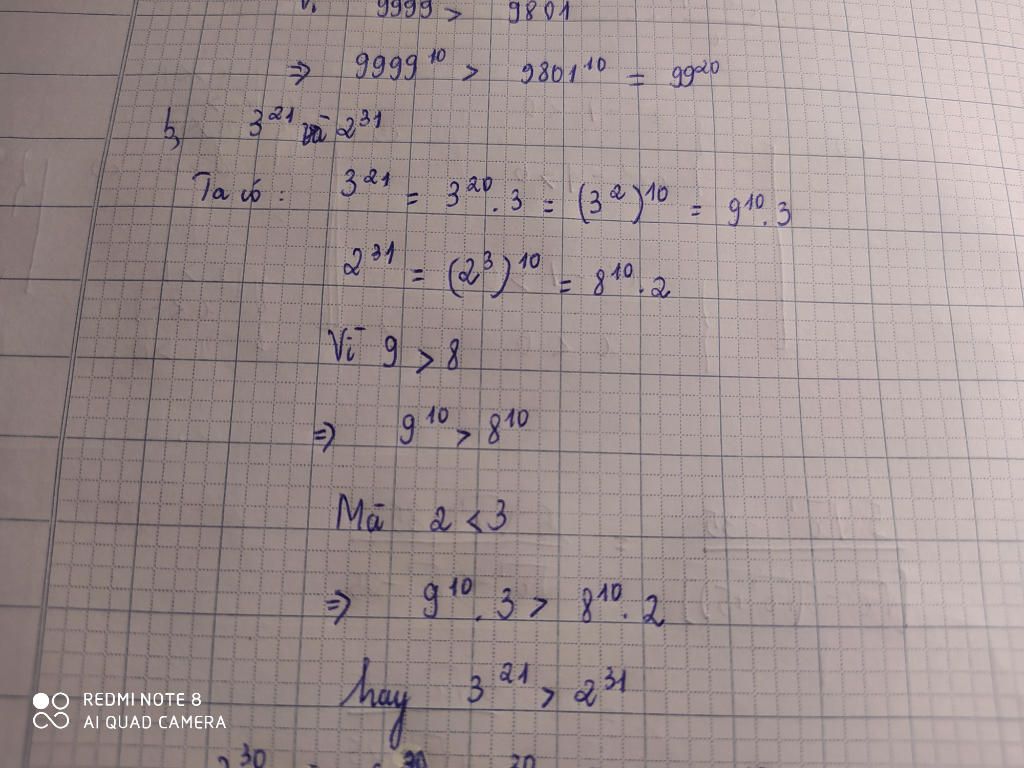 9999 > 9801
⇒ 9999¹⁰ > 9801¹⁰ = 99²⁰
b, 3²¹ và 2³¹
Ta có : 3²¹ = 3²⁰ . 3 = (3²)¹⁰ = 9¹⁰ . 3
2³¹ = (2³)¹⁰ = 8¹⁰ . 2
Vì 9 > 8
⇒ 9¹⁰ > 8¹⁰
Mà 2 < 3
⇒ 9¹⁰ . 3 > 8¹⁰ . 2
hay 3²¹ > 2³¹
REDMI NOTE 8
AI QUAD CAMERA